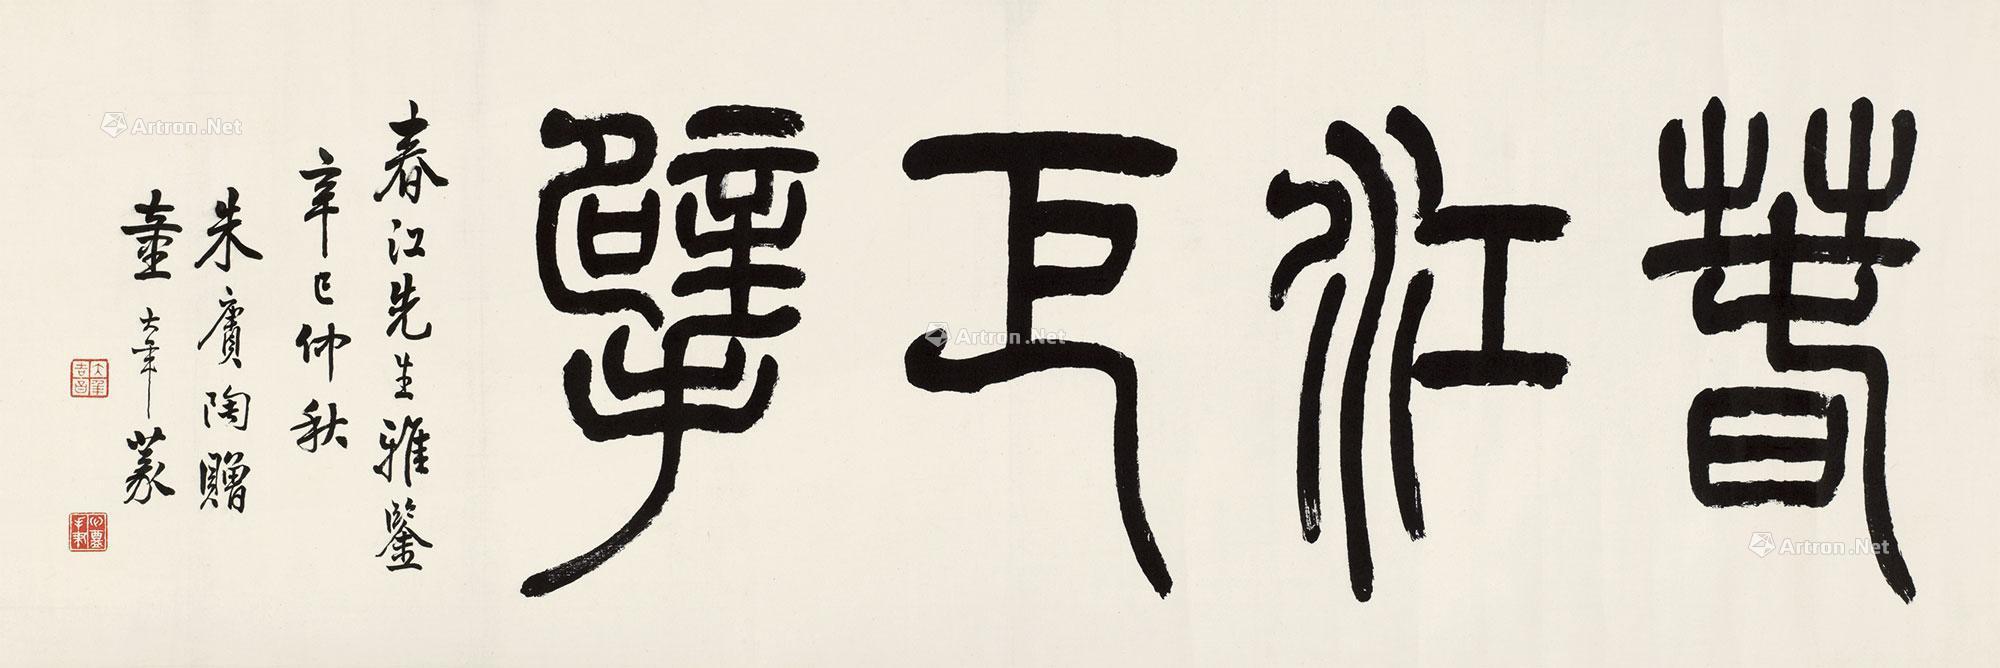 春江巨擘
春江先生雅鑒
辛巳仲秋
朱賡陶贈
童大年篆
Artron.Net
Artron.Net
Artron.Net